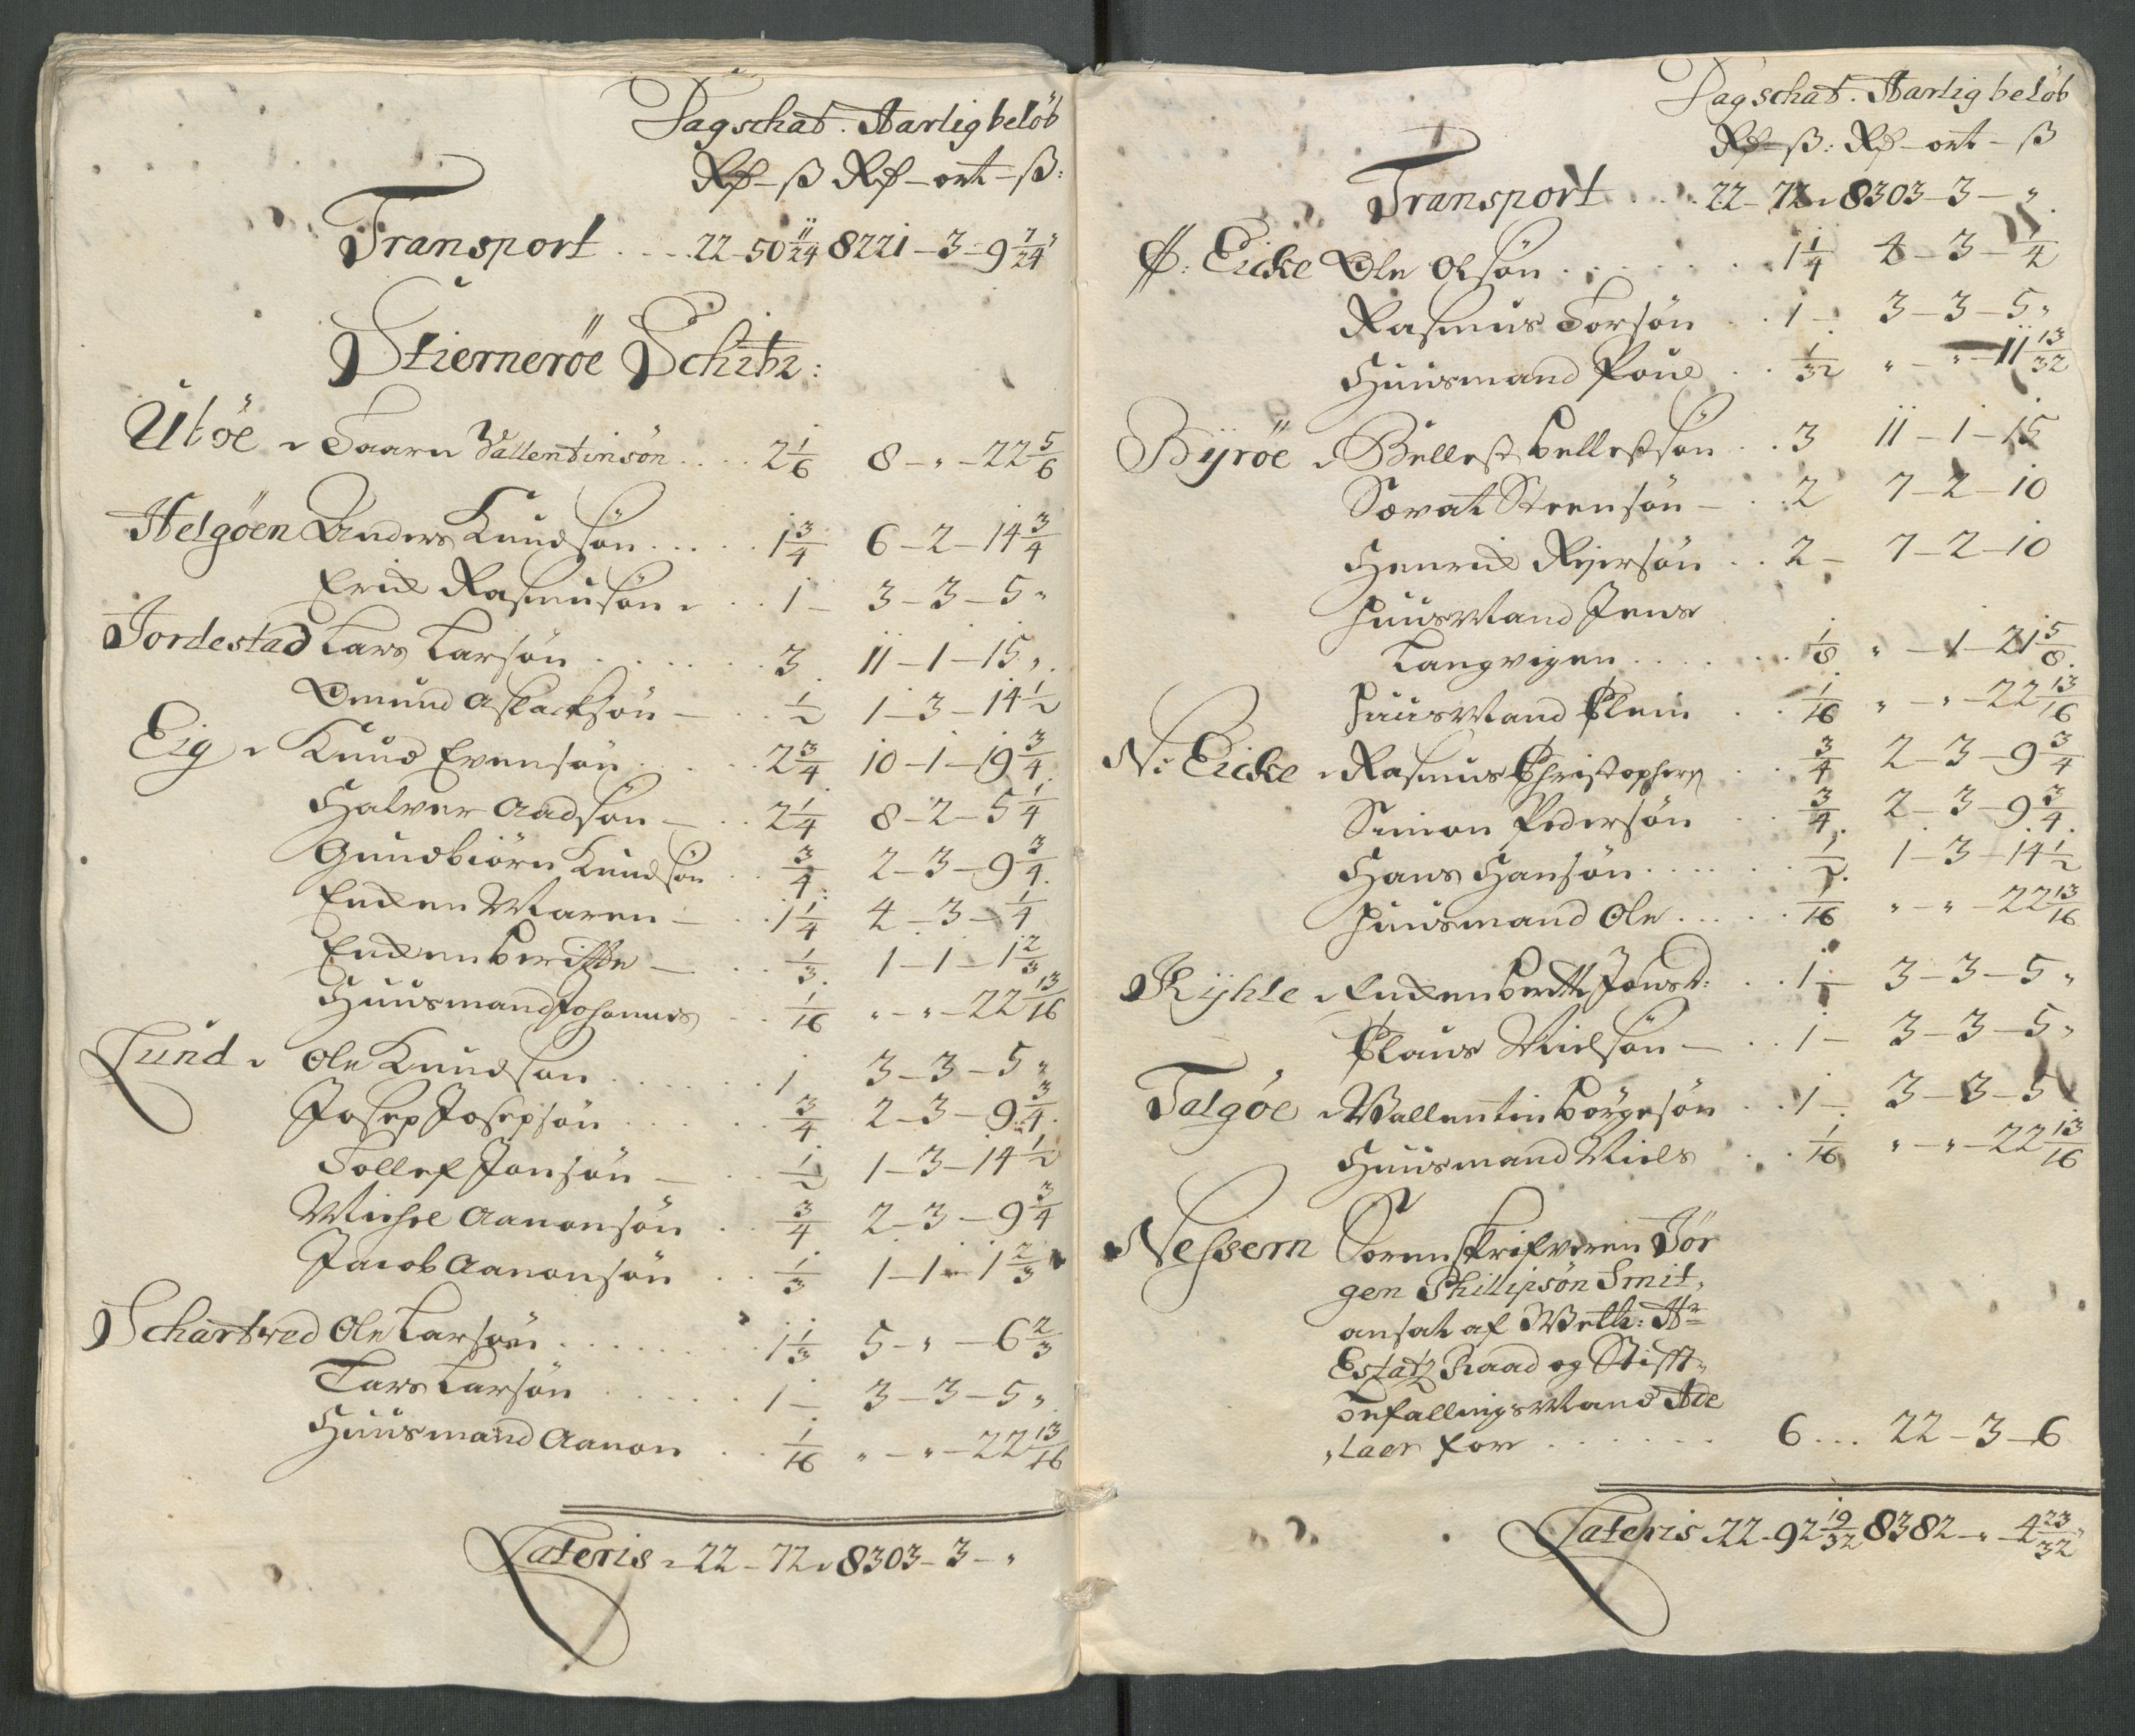 Dagschat. Aarlig belöb
Rd – ß Rd – ort – ß:
Transport .... 22 – 50 11/24 8221 – 3 – 9 7/24
Stiernerøe Schibr:
Utøe Taarn Vallentinsön .... 2 1/6 8 – " – 22 5/6
Helgöen Anders Knudsön .... 1 3/4 6 – 2 – 14 3/4
Erich Rasmusön .. 1 – 3 – 3 – 5 "
Jordestad Lars Larsön ...... 3 11 – 1 – 15 "
Omund Aslacksön – .. 1/2 1 – 3 – 14 1/2
Eig Knud Evensön .... 2 3/4 10 – 1 – 19 3/4
Halver Aadsön – .. 2 1/4 8 – 2 – 5 1/4
Gundbiörn Knudsön .. 3/4 2 – 3 – 9 3/4
Enchen Maren – .. 1 1/4 4 – 3 – 1/4
Enchen Beritte – .. 1/3 1 – 1 – 1 2/3
Huusmand Johannes .. 1/16 " – " – 22 13/16
Lund Ole Knudsön ...... 1 3 – 3 – 5 "
Josep Josepsön ...... 3/4 2 – 3 – 9 3/4
Tollef Jonsön – .. 1/2 1 – 3 – 14 1/2
Michel Aanonsön . 3/4 2 – 3 – 9 3/4
Jacob Aanonsön .. 1/3 1 – 1 – 1 2/3
Schartved Ole Larsön ........ 1 1/3 5 – " – 6 2/3
Lars Larsön ...... 1 – 3 – 3 – 5 "
Huusmand Aanon .. 1/16 " – " – 22 13/16
Lateris 22 – 72 8303 – 3 – "
Dagschat. Aarlig belöb
Rd – ß: Rd – ort – ß
Transport .... 22 – 72 8303 – 3 – "
Eicke Ole Olsön ...... 1 1/4 4 – 3 – 1/4
Rasmus Torsön .. 1 – 3 – 3 – 5 "
Huusmand Poul .. 1/32 " – " – 11 13/32
Byröe Bellest Bellestsön .. 3 11 – 1 – 15
Sævat Steensön – .. 2 7 – 2 – 10
Henrich Rejersön .. 2 – 7 – 2 – 10
Huusmand Jens
Langvigen ...... 1/8 " – 1 – 21 5/8
Huusmand Clem .. 1/16 " – " – 22 13/16
N: Eicke Rasmus Christophers .. 3/4 2 – 3 – 9 3/4
Simon Pedersön .. 3/4 2 – 3 – 9 3/4
Hans Hansön ...... 1/2 1 – 3 – 14 1/2
Huusmand Ole .... 1/16 " – " – 22 13/16
Kyhle Enchen Berthe Jonsd: .. 1 – 3 – 3 – 5 "
Claus Nielsön – .. 1 – 3 – 3 – 5 "
Talgöe Wallentin Börgesön .. 1 – 3 – 3 – 5
Huusmand Niels .. 1/16 " – " – 22 13/16
Nessem Sorenskrifveren Jör
gen Phillipsön Smit,
ansat af Welb: Hr
Estatz Raad og Stifft
Befallingsmand Ade
laer for ...... 6 ... 22 – 3 – 6
Lateris 22 – 92 19/32 8382 – " – 4 23/32